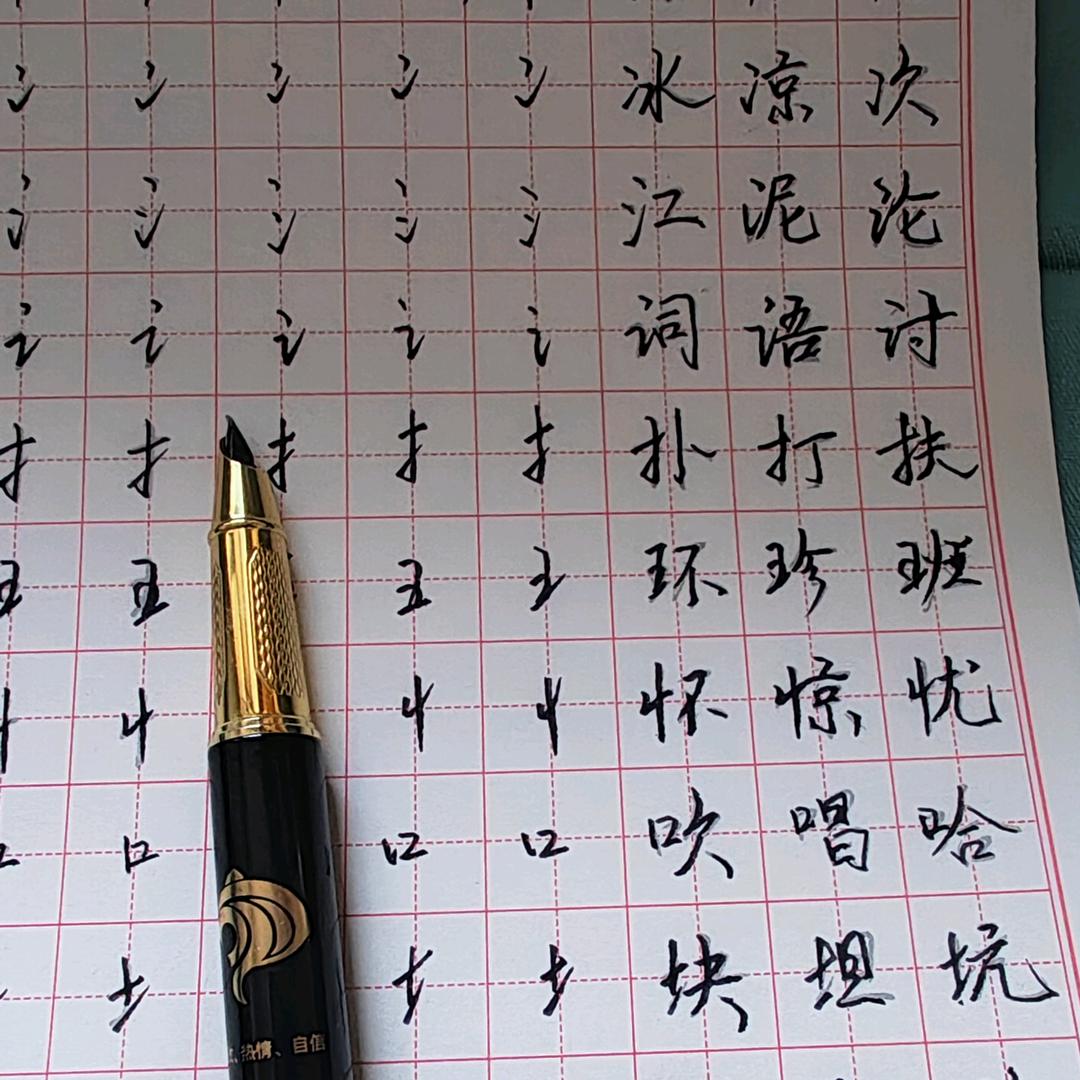 冫 冫 冫 冫 冫 冰 凉 次
氵 氵 氵 氵 氵 江 泥 沦
讠 讠 讠 讠 讠 词 语 讨
扌 扌 扌 扌 扌 扑 打 扶
王 王 王 王 环 珍 班
忄 忄 忄 忄 怀 惊 忧
口 口 口 口 吹 唱 哈
土 土 土 块 坦 坑
热情、自信